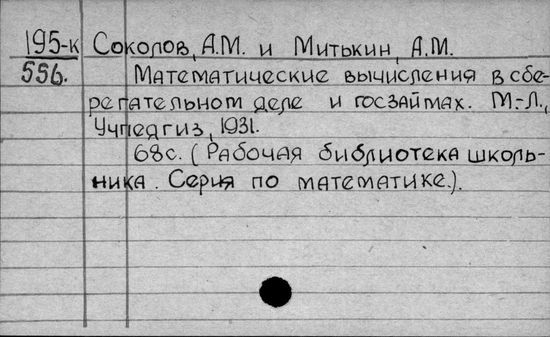 195-к Соколов, А.М. и Митькин, А.М.
556. Математические вычисления в сбе-
регательном деле и госзаймах. М.-Л.,
Учпедгиз, 1931.
68с. (Рабочая библиотека школь-
ника. Серия по математике.).